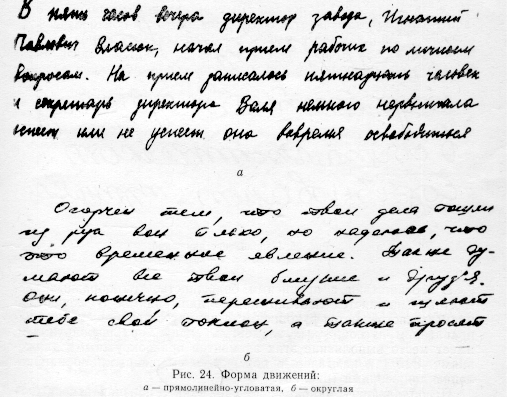 В пять часов вечера директор завода, Игнатий
Павлович Власюк, начал прием рабочих по личным
вопросам. На прием записалось пятнадцать человек
и секретарь директора Валя немного нервничала
успеет или не успеет она вовремя освободиться
а
Огорчен тем, что твои дела
из рук вон плохо, но надеюсь, что
это временное явление. Также ду-
мают все твои близкие и друзья.
Они, конечно, переживают и шлют
тебе свой поклон, а также просят
б
Рис. 24. Форма движений:
а — прямолинейно-угловатая, б — округлая